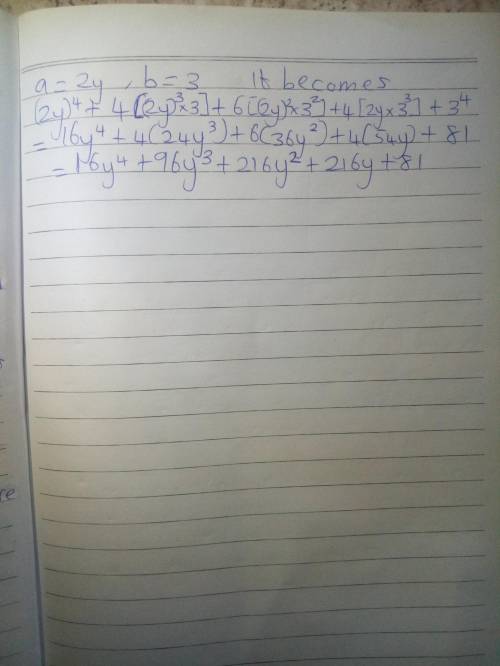 a = 2y , b = 3 It becomes
(2y)⁴ + 4[(2y)³×3] + 6[(2y)²×3²] + 4[2y×3³] + 3⁴
= 16y⁴ + 4(24y³) + 6(36y²) + 4(54y) + 81
= 16y⁴ + 96y³ + 216y² + 216y + 81